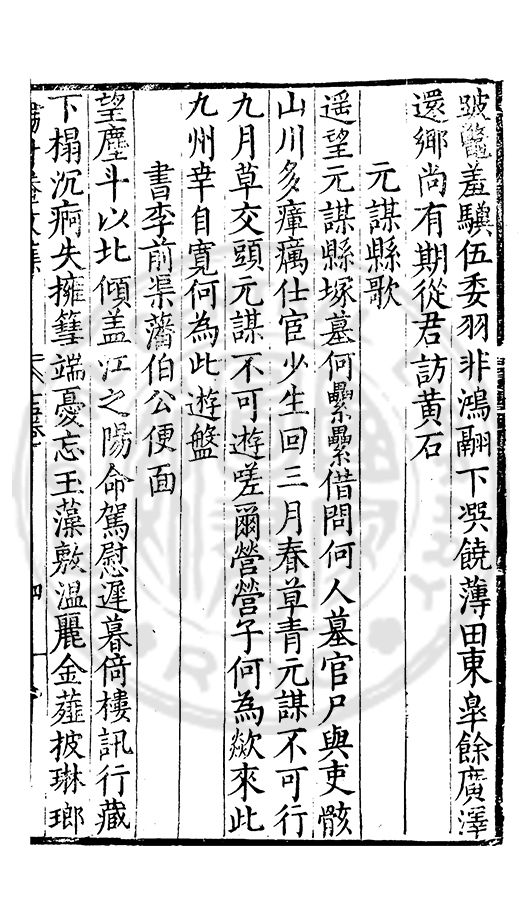 跛鼈羞驥伍委羽非鴻翮下噀饒薄田東皐餘廣澤
還鄉尚有期從君訪黄石
元謀縣歌
遥望元謀縣塚墓何纍纍借問何人墓官尸與吏骸
山川多瘴癘仕宦少生回三月春草青元謀不可行
九月草交頭元謀不可遊嗟爾營營子何為歘來此
九州幸自寛何為此遊盤
書李前渠藩伯公便面
望塵斗以北傾盖江之陽命駕慰遲暮倚樓訊行藏
下榻沉痾失擁篲端憂忘玉藻敷温麗金薤披琳瑯